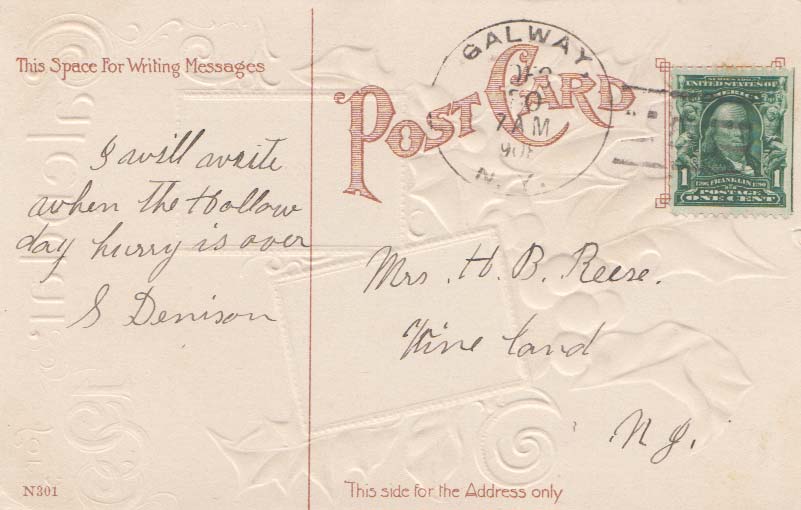 This Space For Writing Messages
POST CARD
GALWAY,
DEC
7 AM
N.Y.
SERIES 1902
UNITED STATES OF
AMERICA
1 FRANKLIN 1
POSTAGE
ONE CENT
I will write
when the Hollow
day hurry is over
S Denison
Mrs. H. B. Reese.
Vine land
N J.
N301
This side for the Address only